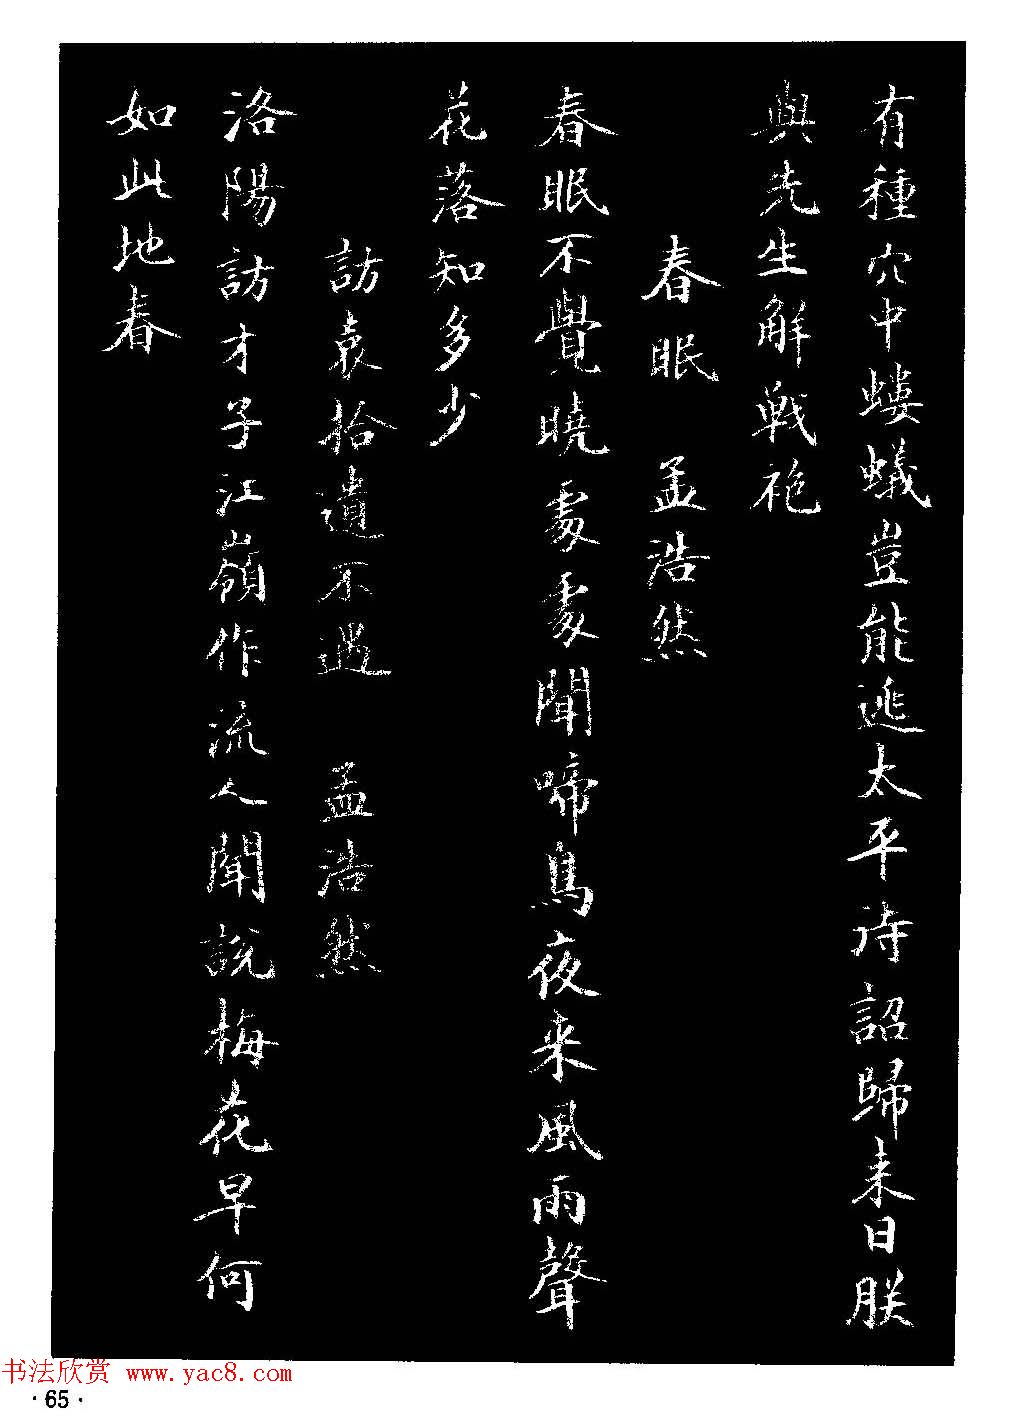 有種穴中螻蟻豈能逃太平待詔歸来日朕
與先生解戰袍
春眠 孟浩然
春眠不覺曉處處聞啼鳥夜来風雨聲
花落知多少
訪袁拾遺不遇 孟浩然
洛陽訪才子江嶺作流人聞說梅花早何
如此地春
书法欣赏 www.yac8.com
·65·